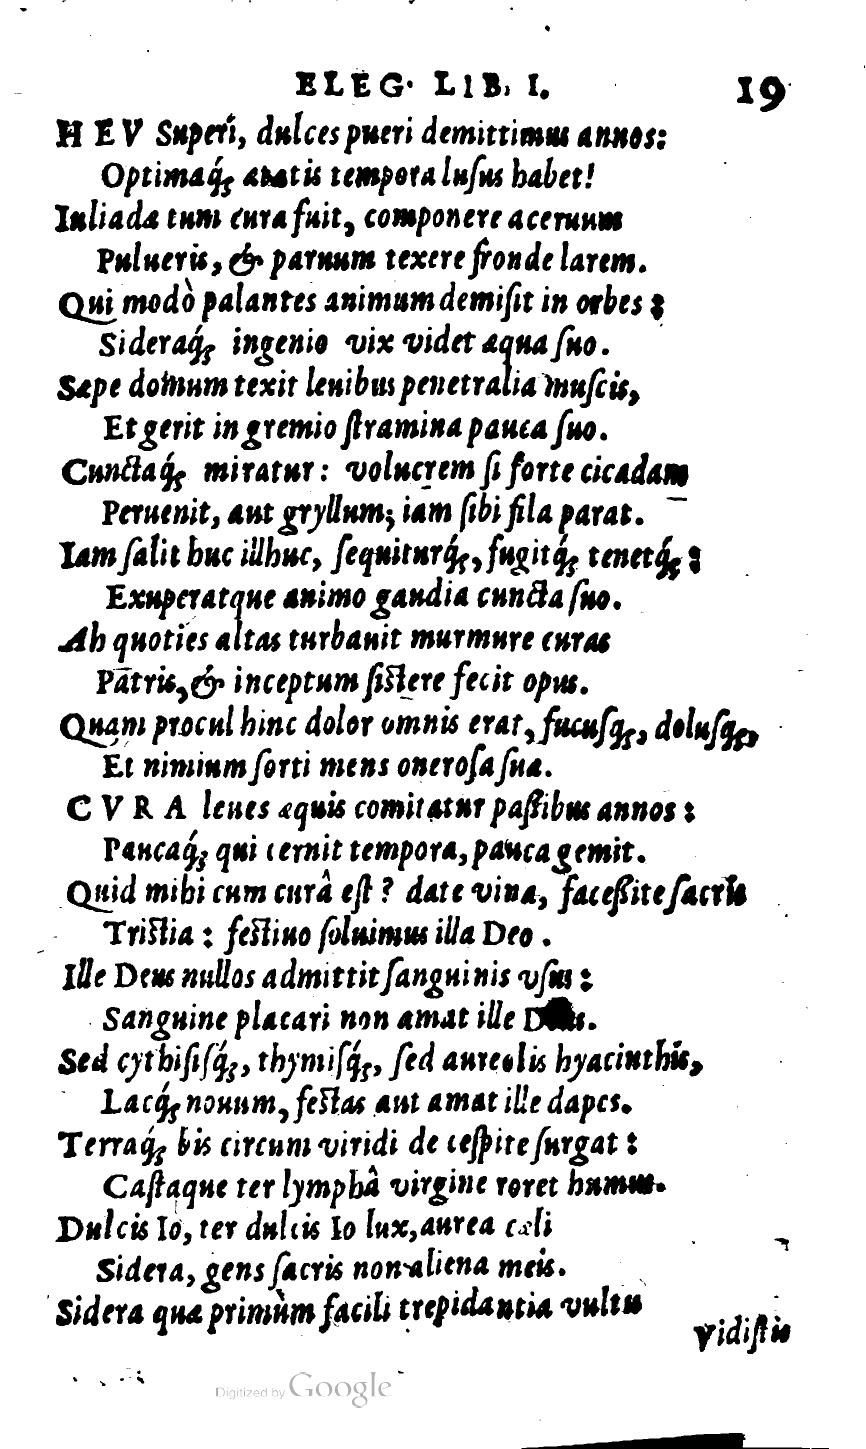 ELEG. LIB. I. 19
HEV Superi, dulces pueri demittimus annos:
Optimaq́; ætatis tempora luſus habet!
Iuliada tum cura fuit, componere aceruum
Pulueris, & paruum texere fronde larem.
Qui modò palantes animum demiſit in orbes:
Sideraq́; ingenio vix videt æqua ſuo.
Sæpe domum texit leuibus penetralia muſcis,
Et gerit in gremio ſtramina pauca ſuo.
Cunctaq́; miratur: volucrem ſi forte cicadam
Peruenit, aut gryllum; iam ſibi fila parat.
Iam ſalit huc illhuc, ſequiturq́;, fugitq́; tenetq́;:
Exuperatque animo gaudia cuncta ſuo.
Ah quoties altas turbauit murmure curas
Patris, & inceptum ſiſtere fecit opus.
Quam procul hinc dolor omnis erat, fucuſq;, doluſq;,
Et nimium ſorti mens oneroſa ſuæ.
CVRA leues æquis comitatur paſſibus annos:
Paucaq́; qui cernit tempora, pauca gemit.
Quid mihi cum curâ eſt? date vina, faceſſite ſacris
Triſtia: feſtino ſoluimus illa Deo.
Ille Deus nullos admittit ſanguinis vſus:
Sanguine placari non amat ille
Sed cythiſiſq́;, thymiſq́;, ſed aureolis hyacinthis,
Lacq́; nouum, feſtas aut amat ille dapes.
Terraq́; bis circum viridi de ceſpite ſurgat:
Caſtaque ter lymphâ virgine roret humus.
Dulcis Io, ter dulcis Io lux, aurea cæli
Sidera, gens ſacris non aliena meis.
Sidera quæ primùm facili trepidantia vultu
Vidiſtis
Digitized by Google